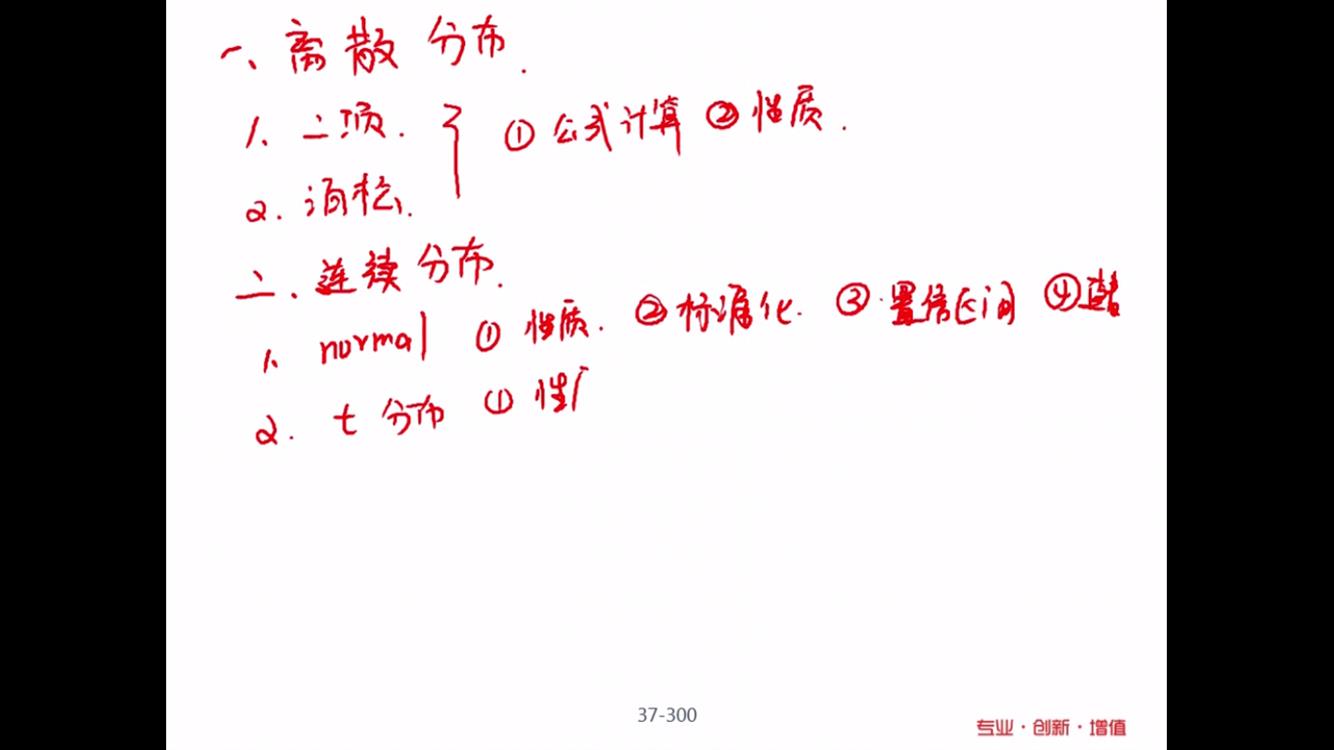 一、离散分布.
1、二项. } ①公式计算 ②性质.
2. 泊松.
二、连续分布.
1、normal ①性质. ②标准化. ③置信区间 ④
2. t分布 ①性
37-300
专业·创新·增值